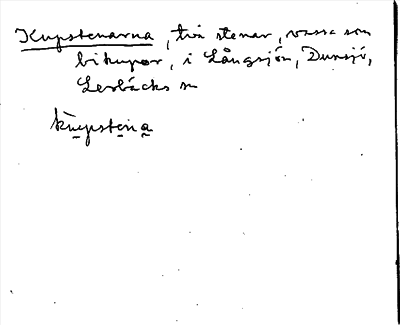 Kupstenarna, två stenar, vassa som
bikupor, i Långsjön, Dunsjö,
Lerbäcks sn
kupstena